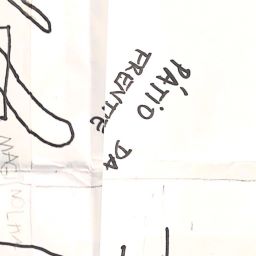 PÁTIO DA
FRENTE